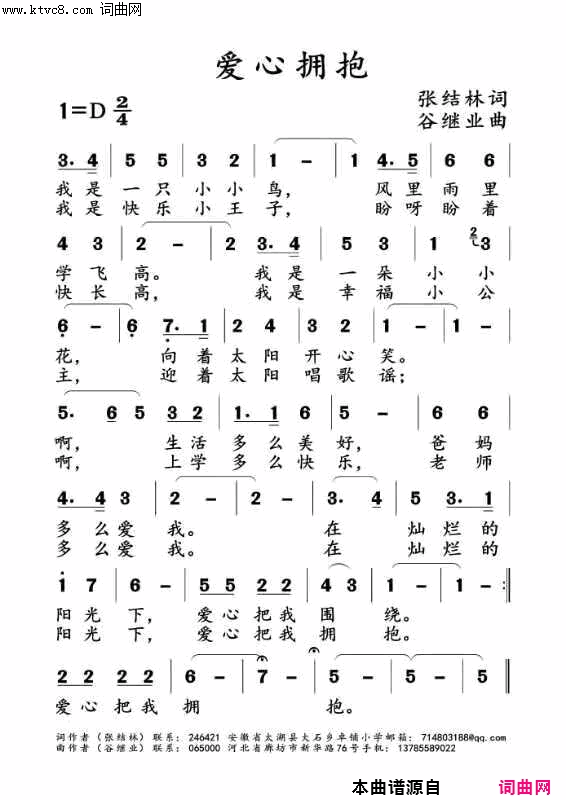 www.ktvc8.com 词曲网
爱心拥抱
1=D 2/4
张结林词
谷继业曲
3. 4 | 5 5 | 3 2 | 1 - | 1 4. 5 | 6 6 |
我是一只小小鸟， 风里雨里
我是快乐小王子， 盼呀盼着
4 3 | 2 - | 2 3. 4 | 5 3 | 1 2 3 |
学飞高。 我是一朵小小
快长高， 我是幸福小公
6 - | 6 7. 1 | 2 4 | 3 2 | 1 - | 1 - |
花， 向着太阳开心笑。
主， 迎着太阳唱歌谣；
5. 6 5 | 3 2 1. 1 | 6 5 | 5 - | 6 6 |
啊， 生活多么美好， 爸妈
啊， 上学多么快乐， 老师
4. 4 3 | 2 - | 2 - | 3. 4 | 5 3. 1 |
多么爱我。 在灿烂的
多么爱我。 在灿烂的
1 7 | 6 - | 5 5 2 2 | 4 3 | 1 - | 1 - :‖
阳光下， 爱心把我围绕。
阳光下， 爱心把我拥抱。
2 2 2 2 | 6 - | 7 - | 5 - | 5 - | 5 ‖
爱心把我拥抱。
词作者（张结林）联系：246421 安徽省太湖县大石乡卓铺小学邮箱：714803188@qq.com
曲作者（谷继业）联系：065000 河北省廊坊市新华路76号手机：13785589022
本曲谱源自 词曲网